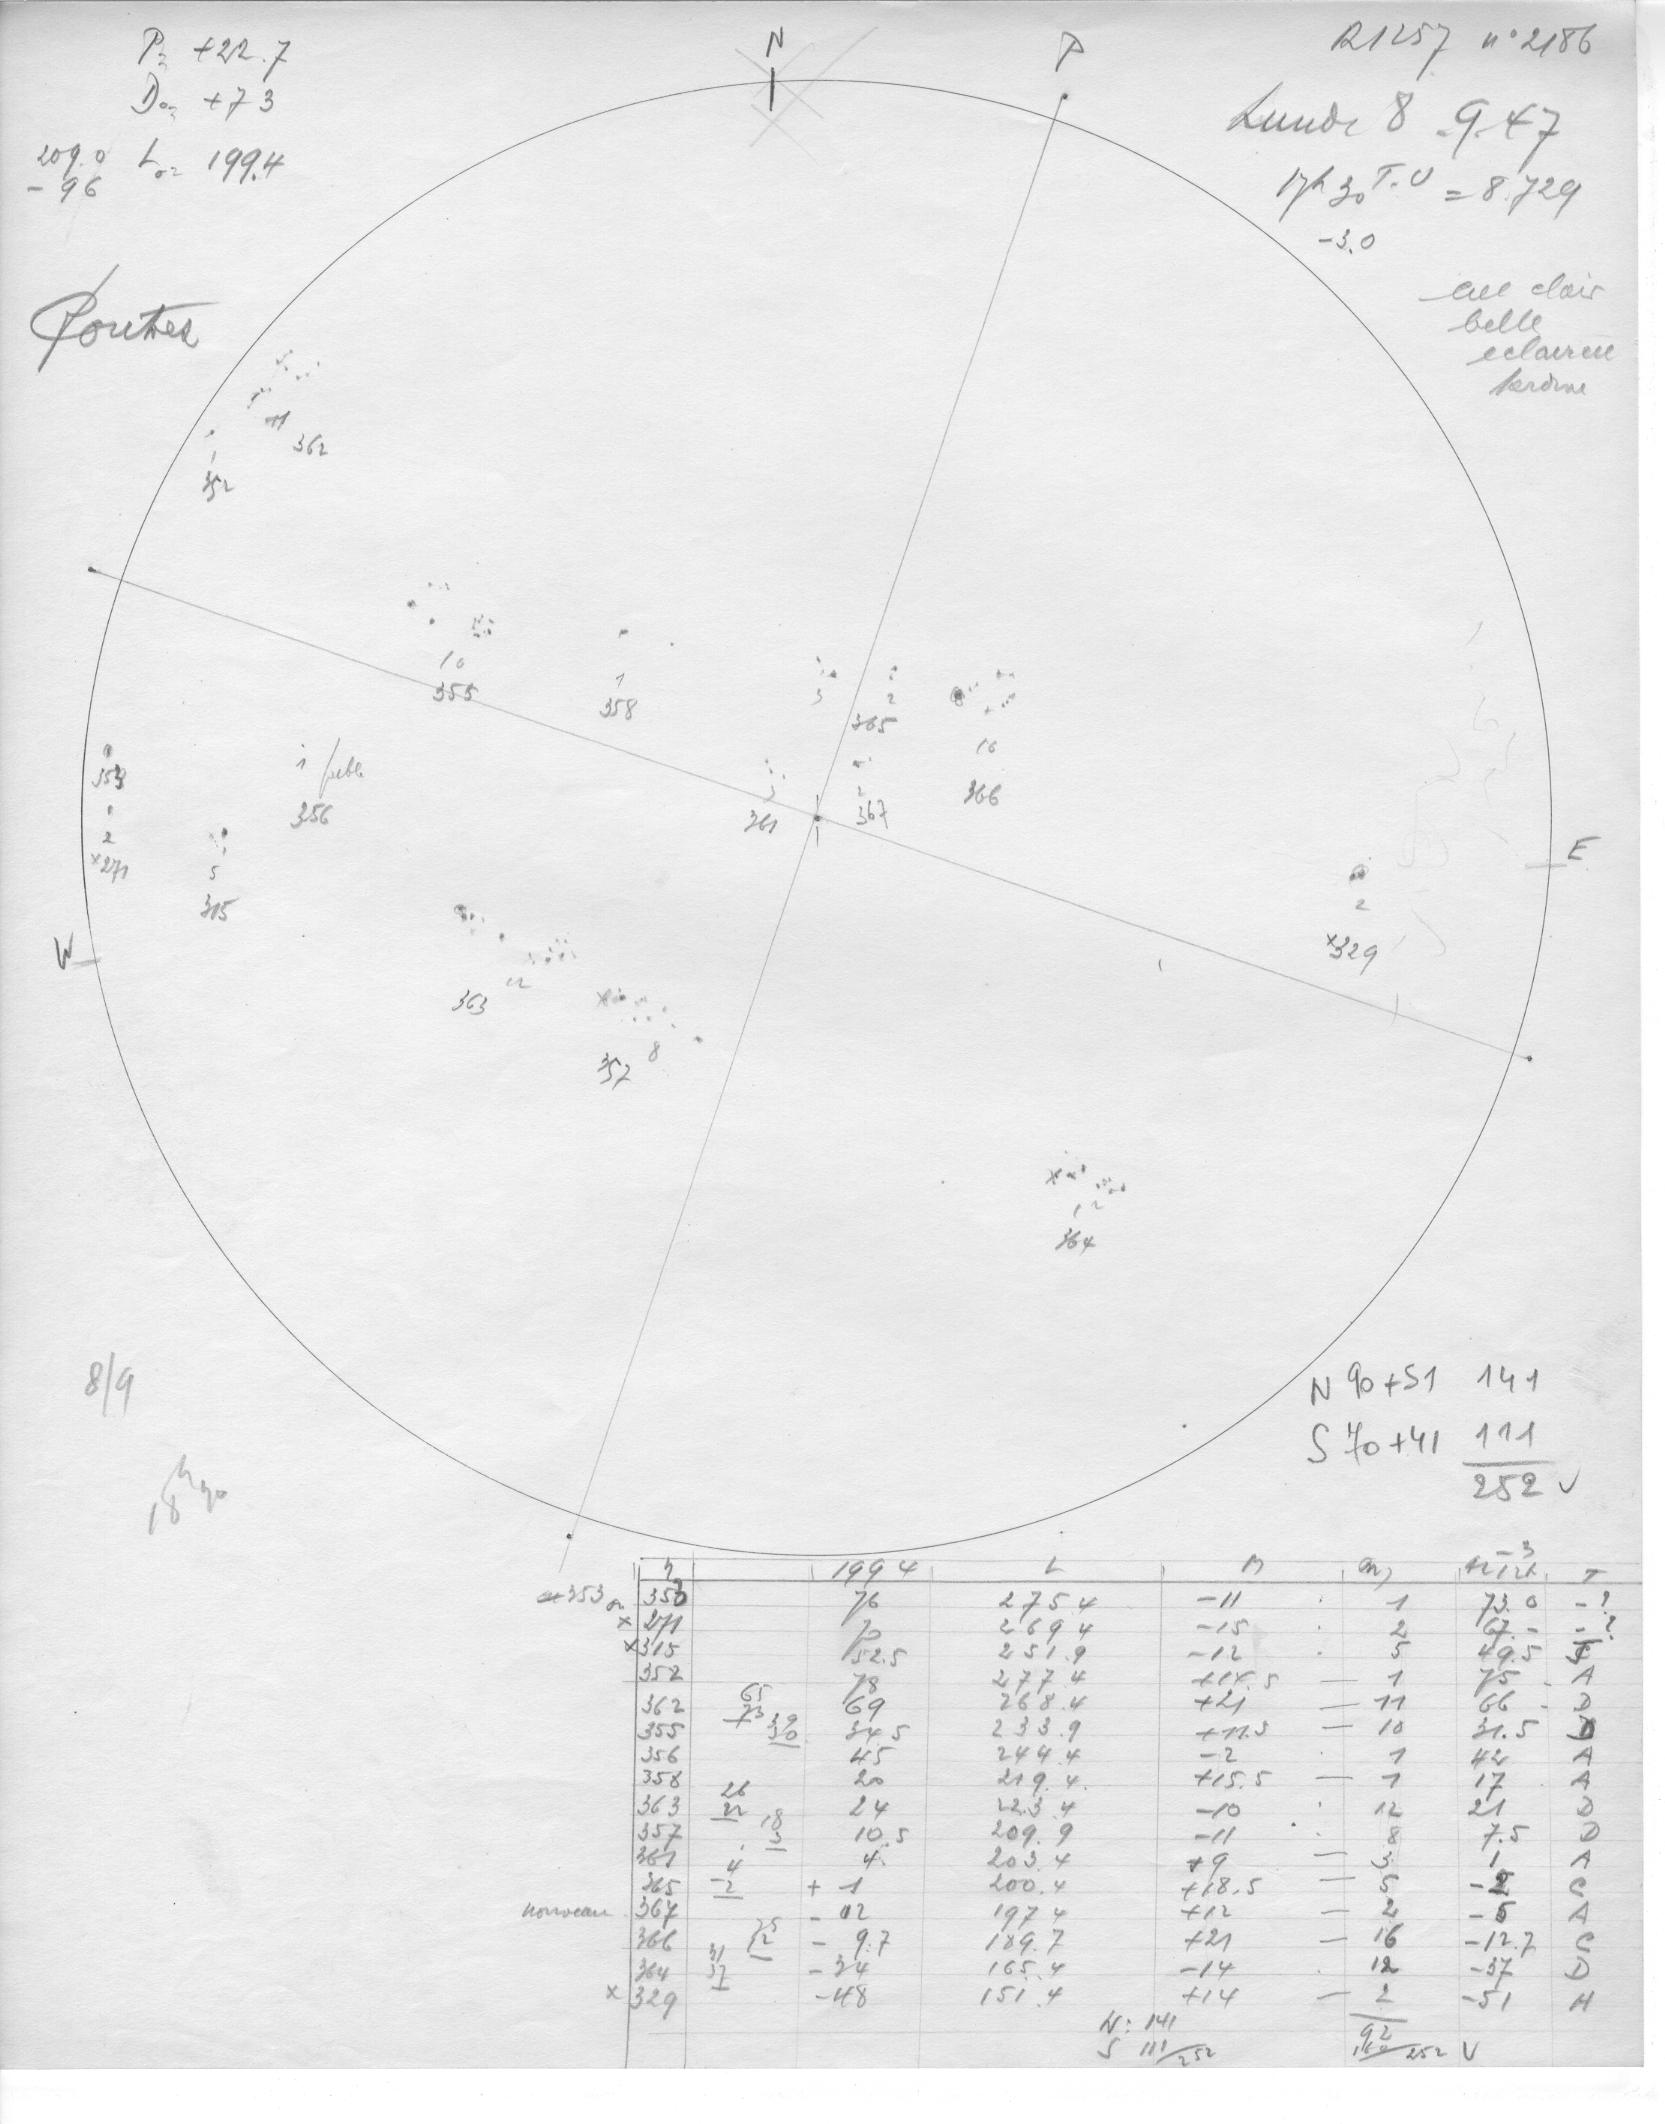 P= +22.7
Do= +7.3
209.0 Lo= 199.4
- 9.6
N
P
R1257 n° 2186
Lundi 8 .9.47
17h 30 T.U = 8.729
-3.0
ciel clair
belle
eclaircie
11
362
1
352
10
355
1
358
3
2
365
16
366
353
2
x271
1 faible
356
5
315
3
361
2
367
E
2
x329
W
12
363
8
357
12
364
8/9
N 90+51 141
S 70+41 111
252 V
199.4 L M -3 T
353 ou 353 76 275.4 -11 1 73.0 -?
x 271 70 269.4 -15 2 67.- -?
x315 52.5 251.9 -12 5 49.5
352 78 277.4 +14.5 — 1 75 A
362 65 73 69 268.4 +21 — 11 66 D
355 39 30 34.5 233.9 +11.5 — 10 31.5 D
356 45 244.4 -2 1 42 A
358 20 219.4 +15.5 — 1 17 A
363 26 22 24 223.4 -10 12 21 D
357 18 3 10.5 209.9 -11 8 7.5 D
361 4 203.4 +9 — 3 1 A
365 4 -2 + 1 200.4 +18.5 — 5 -2 C
nouveau 367 - 02 197.4 +12 — 2 -5 A
366 - 9.7 189.7 +21 — 16 -12.7 C
364 31 37 -34 165.4 -14 12 -37 D
x 329 -48 151.4 +14 — 2 -51 H
N: 141
S 111/252
92
160/252 V